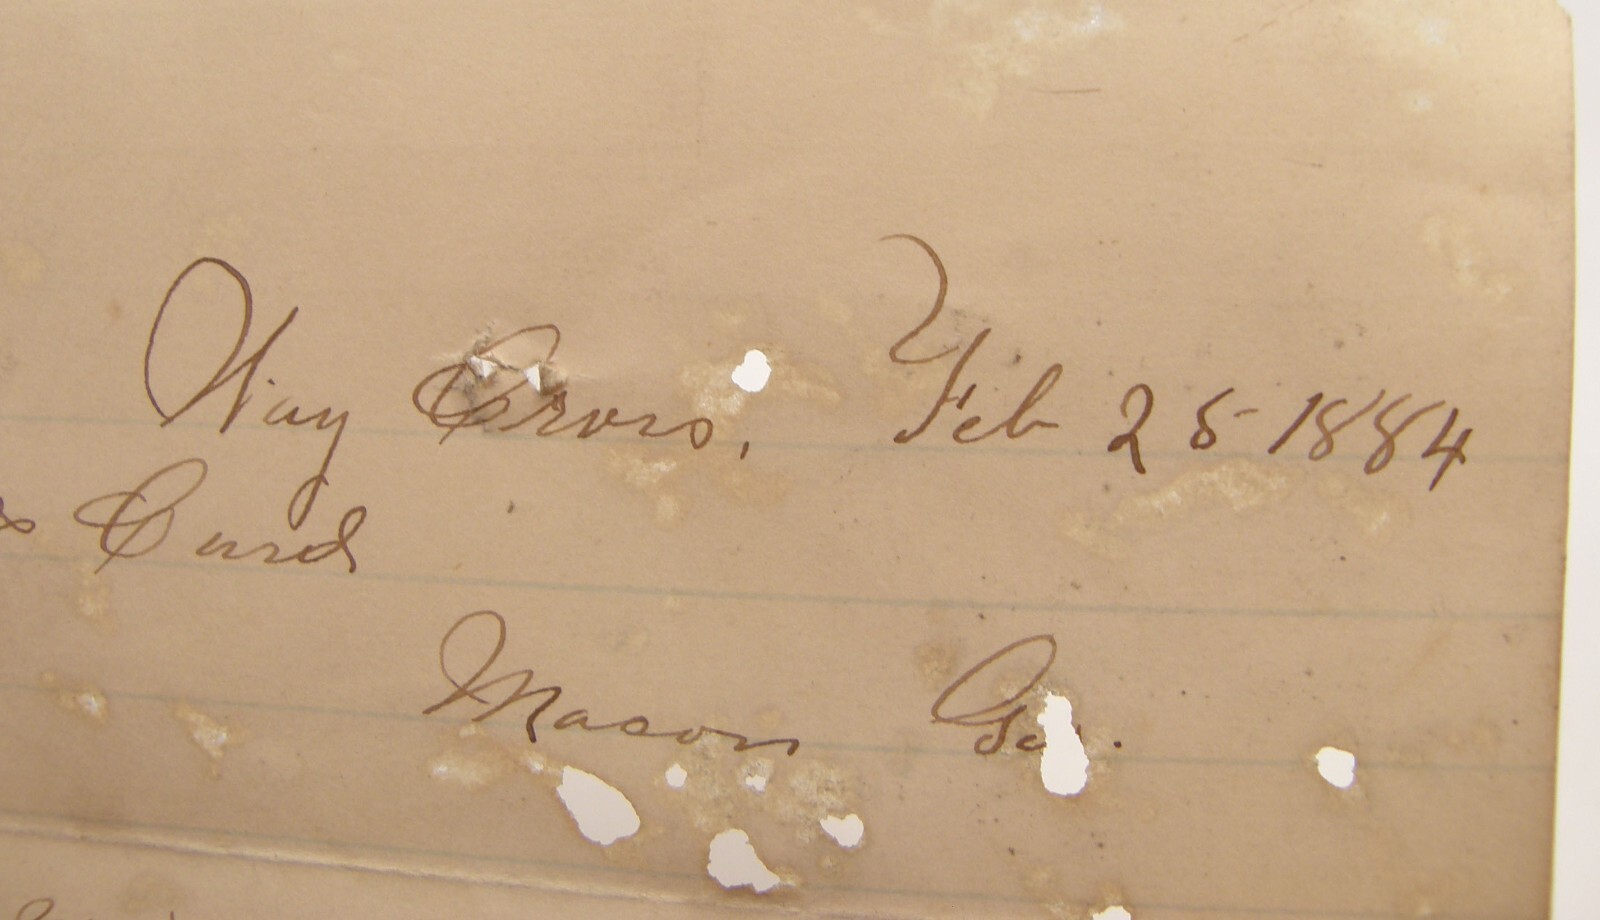 Way Cross, Feb 25 - 1884
& Curd
Macon Ga.